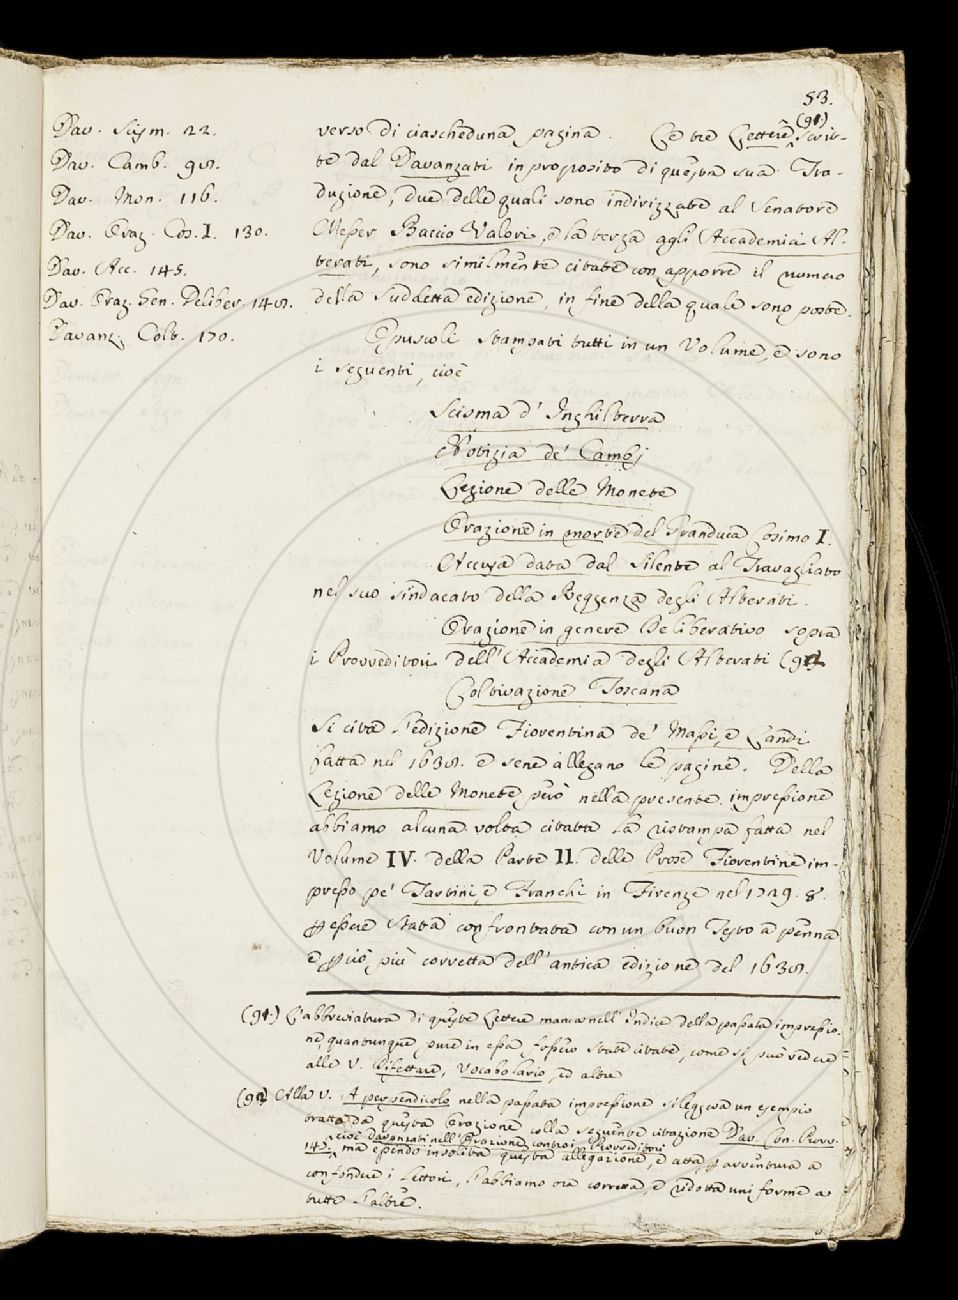 53.
Dav. Scism. 22.
Dav. Camb. 98.
Dav. Mon. 116.
Dav. Oraz. Cos. I. 130.
Dav. Acc. 145.
Dav. Oraz. Gen. Deliber. 148.
Davanz. Colt. 170.
verso di ciascheduna pagina. Le tre Lettere (91) Scrit-
te dal Davanzati in proposito di questa sua Tra-
duzione, due delle quali sono indirizzate al Senatore
Messer Baccio Valori, e la terza agli Accademici Al-
terati, sono similmente citate con apporre il numero
della suddetta edizione, in fine della quale sono poste.
Opuscoli stampati tutti in un Volume, e sono
i seguenti, cioè
Scisma d' Inghilterra
Notizia de' Cambj
Lezione delle Monete
Orazione in morte del Granduca Cosimo I.
Accusa data dal Silente al Travagliato
nel suo sindacato della Reggenza degli Alterati.
Orazione in genere Deliberativo sopra
i Provveditori dell' Accademia degli Alterati (92)
Coltivazione Toscana
Si cita l'edizione Fiorentina de' Massi, e Landi
fatta nel 1638. e sene allegano le pagine. Della
Lezione delle Monete però nella presente impressione
abbiamo alcuna volta citata la ristampa fatta nel
Volume IV. della Parte II. delle Prose Fiorentine im-
presso pe' Tartini, e Franchi in Firenze nel 1729. 8.
p essere stata confrontata con un buon Testo a penna
e p ciò più corretta dell' antica edizione del 1638.
(91) L'abbreviatura di queste Lettere manca nell' Indice della passata impressio-
ne, quantunque pure in essa fossero state citate, come si può vedere
alle V. Difettare, Vocabolario, ed altre
(92) Alla V. A perpendicolo nella passata impressione si leggeva un esempio
tratto da questa Orazione colla seguente citazione Dav. Con. Provv.
cioè Davanzati nell' Orazione contro i Provveditori
143. ma essendo insolita questa allegazione, e atta p avventura a
confondere i Lettori, l'abbiamo ora corretta, e ridotta uniforme a
tutte l'altre.